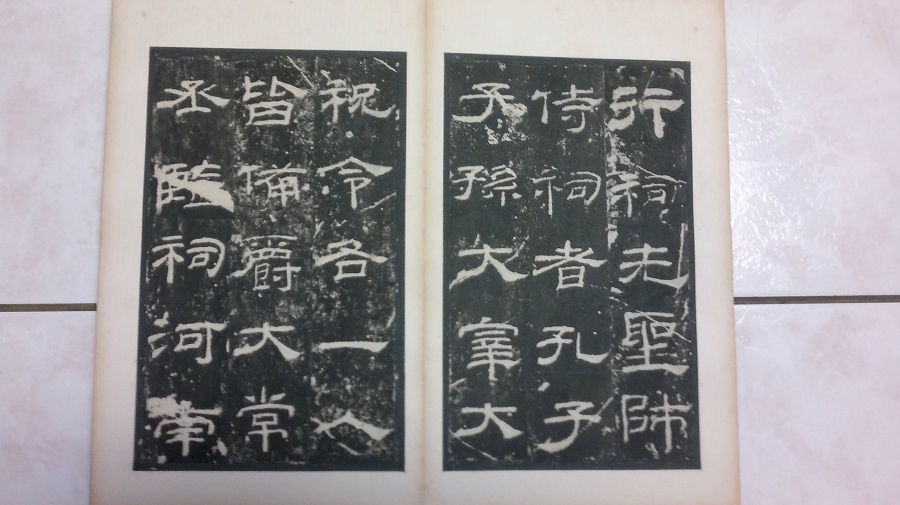 行祠先聖師
侍祠者孔子
子孫大宰大
祝令各一人
皆備爵大常
丞監祠河南